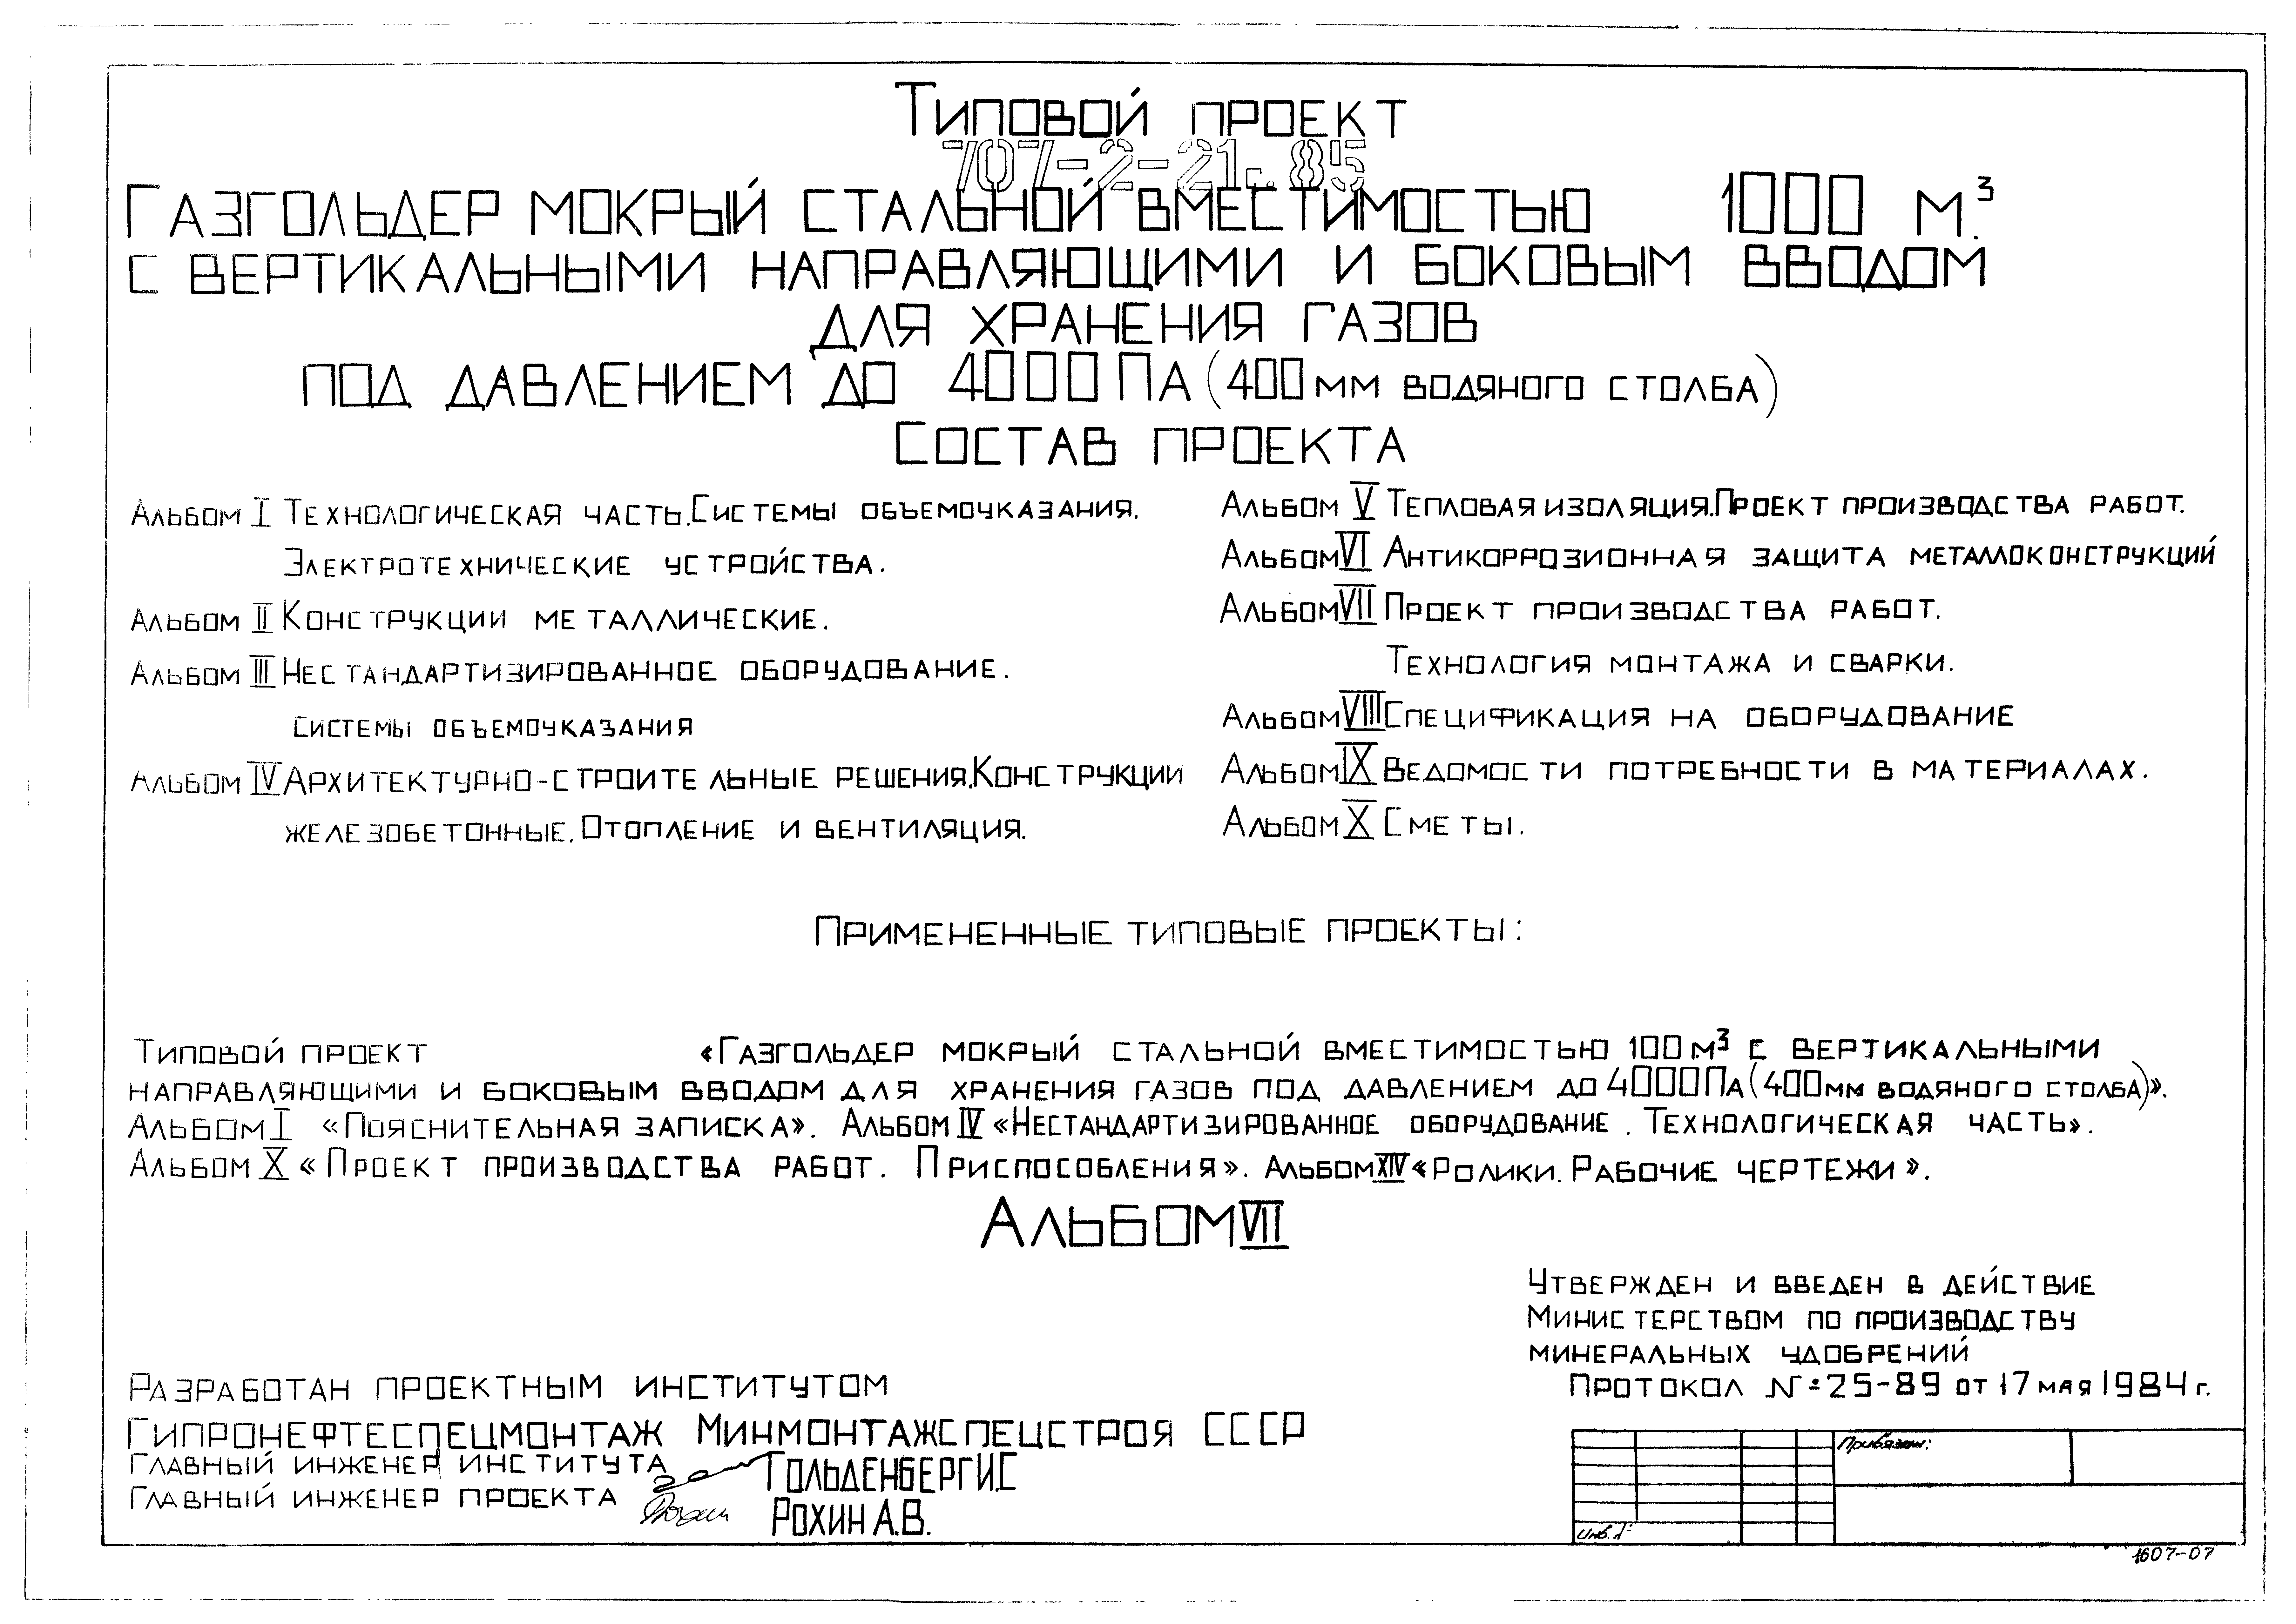 Типовой проект
707-2-21с.85
Газгольдер мокрый стальной вместимостью 1000 м³.
с вертикальными направляющими и боковым вводом
для хранения газов
под давлением до 4000 Па (400 мм водяного столба)
Состав проекта
Альбом I Технологическая часть. Системы объемоуказания.
Электротехнические устройства.
Альбом II Конструкции металлические.
Альбом III Нестандартизированное оборудование.
Системы объемоуказания
Альбом IV Архитектурно-строительные решения. Конструкции
железобетонные. Отопление и вентиляция.
Альбом V Тепловая изоляция. Проект производства работ.
Альбом VI Антикоррозионная защита металлоконструкций
Альбом VII Проект производства работ.
Технология монтажа и сварки.
Альбом VIII Спецификация на оборудование
Альбом IX Ведомости потребности в материалах.
Альбом X Сметы.
Примененные типовые проекты:
Типовой проект «Газгольдер мокрый стальной вместимостью 100 м³ с вертикальными
направляющими и боковым вводом для хранения газов под давлением до 4000 Па (400 мм водяного столба)».
Альбом I «Пояснительная записка». Альбом IV «Нестандартизированное оборудование. Технологическая часть».
Альбом X «Проект производства работ. Приспособления». Альбом XIV «Ролики. Рабочие чертежи».
Альбом VII
Утвержден и введен в действие
Министерством по производству
минеральных удобрений
Протокол № 25-89 от 17 мая 1984 г.
Разработан проектным институтом
Гипронефтеспецмонтаж Минмонтажспецстроя СССР
Главный инженер института Гольденберг И.С
Главный инженер проекта Рохин А.В.
Привязан:
Инв. №
1607-07